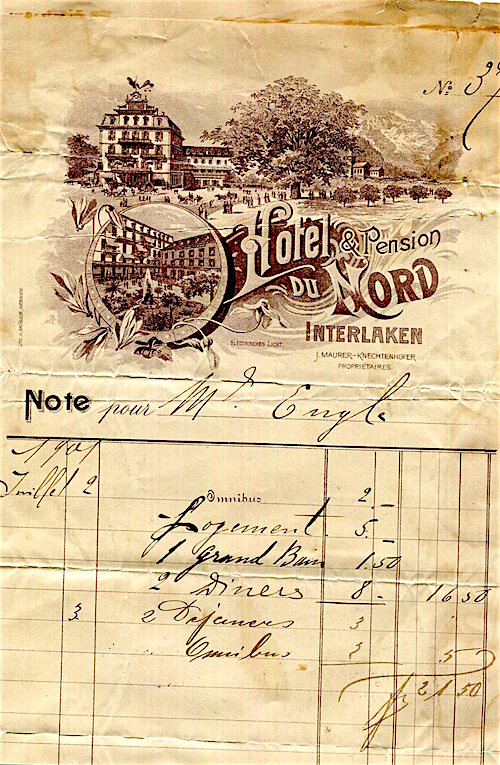 No. 37
Hotel & Pension
DU NORD
INTERLAKEN
ELECTRISCHES LICHT.
J. MAURER-KNECHTENHOFER
PROPRIETAIRES.
Note pour Mr. Engle
1901
Juillet 2
Omnibus 2.-
Logement 5.-
1 Grand Bain 1.50
2 Diners 8- 16 50
3. 2 Dejeuners 3
Omnibus 2 5
fr 21 50